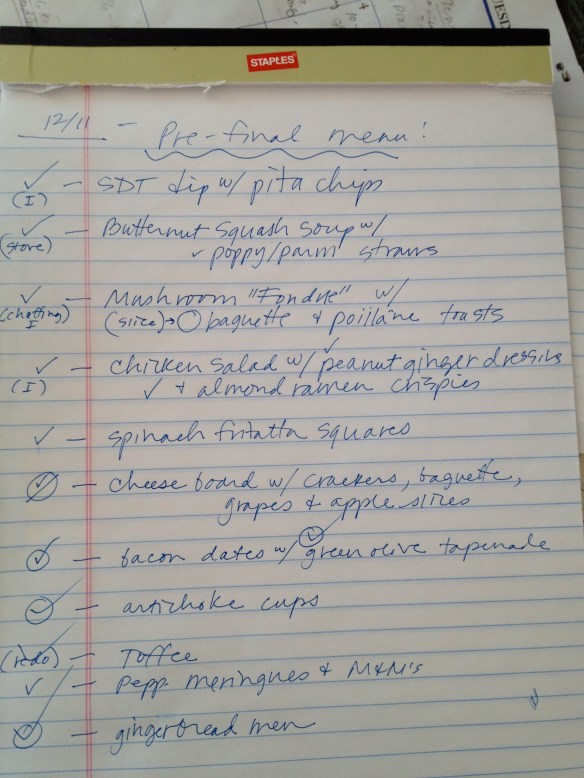 STAPLES
12/11 - Pre-final menu!
(I) - SDT dip w/ pita chips
(stove) - Butternut squash soup w/
poppy/parm straws
(chaffing) I - Mushroom "Fondue" w/
(slice)→ baguette & poilâne toasts
(I) - chicken salad w/ peanut ginger dressing
& almond ramen crispies
- spinach fritatta squares
- cheese board w/ crackers, baguette,
grapes & apple slices
- bacon dates w/ green olive tapenade
- artichoke cups
(redo) - Toffee
- pepp meringues & M&M's
- gingerbread men